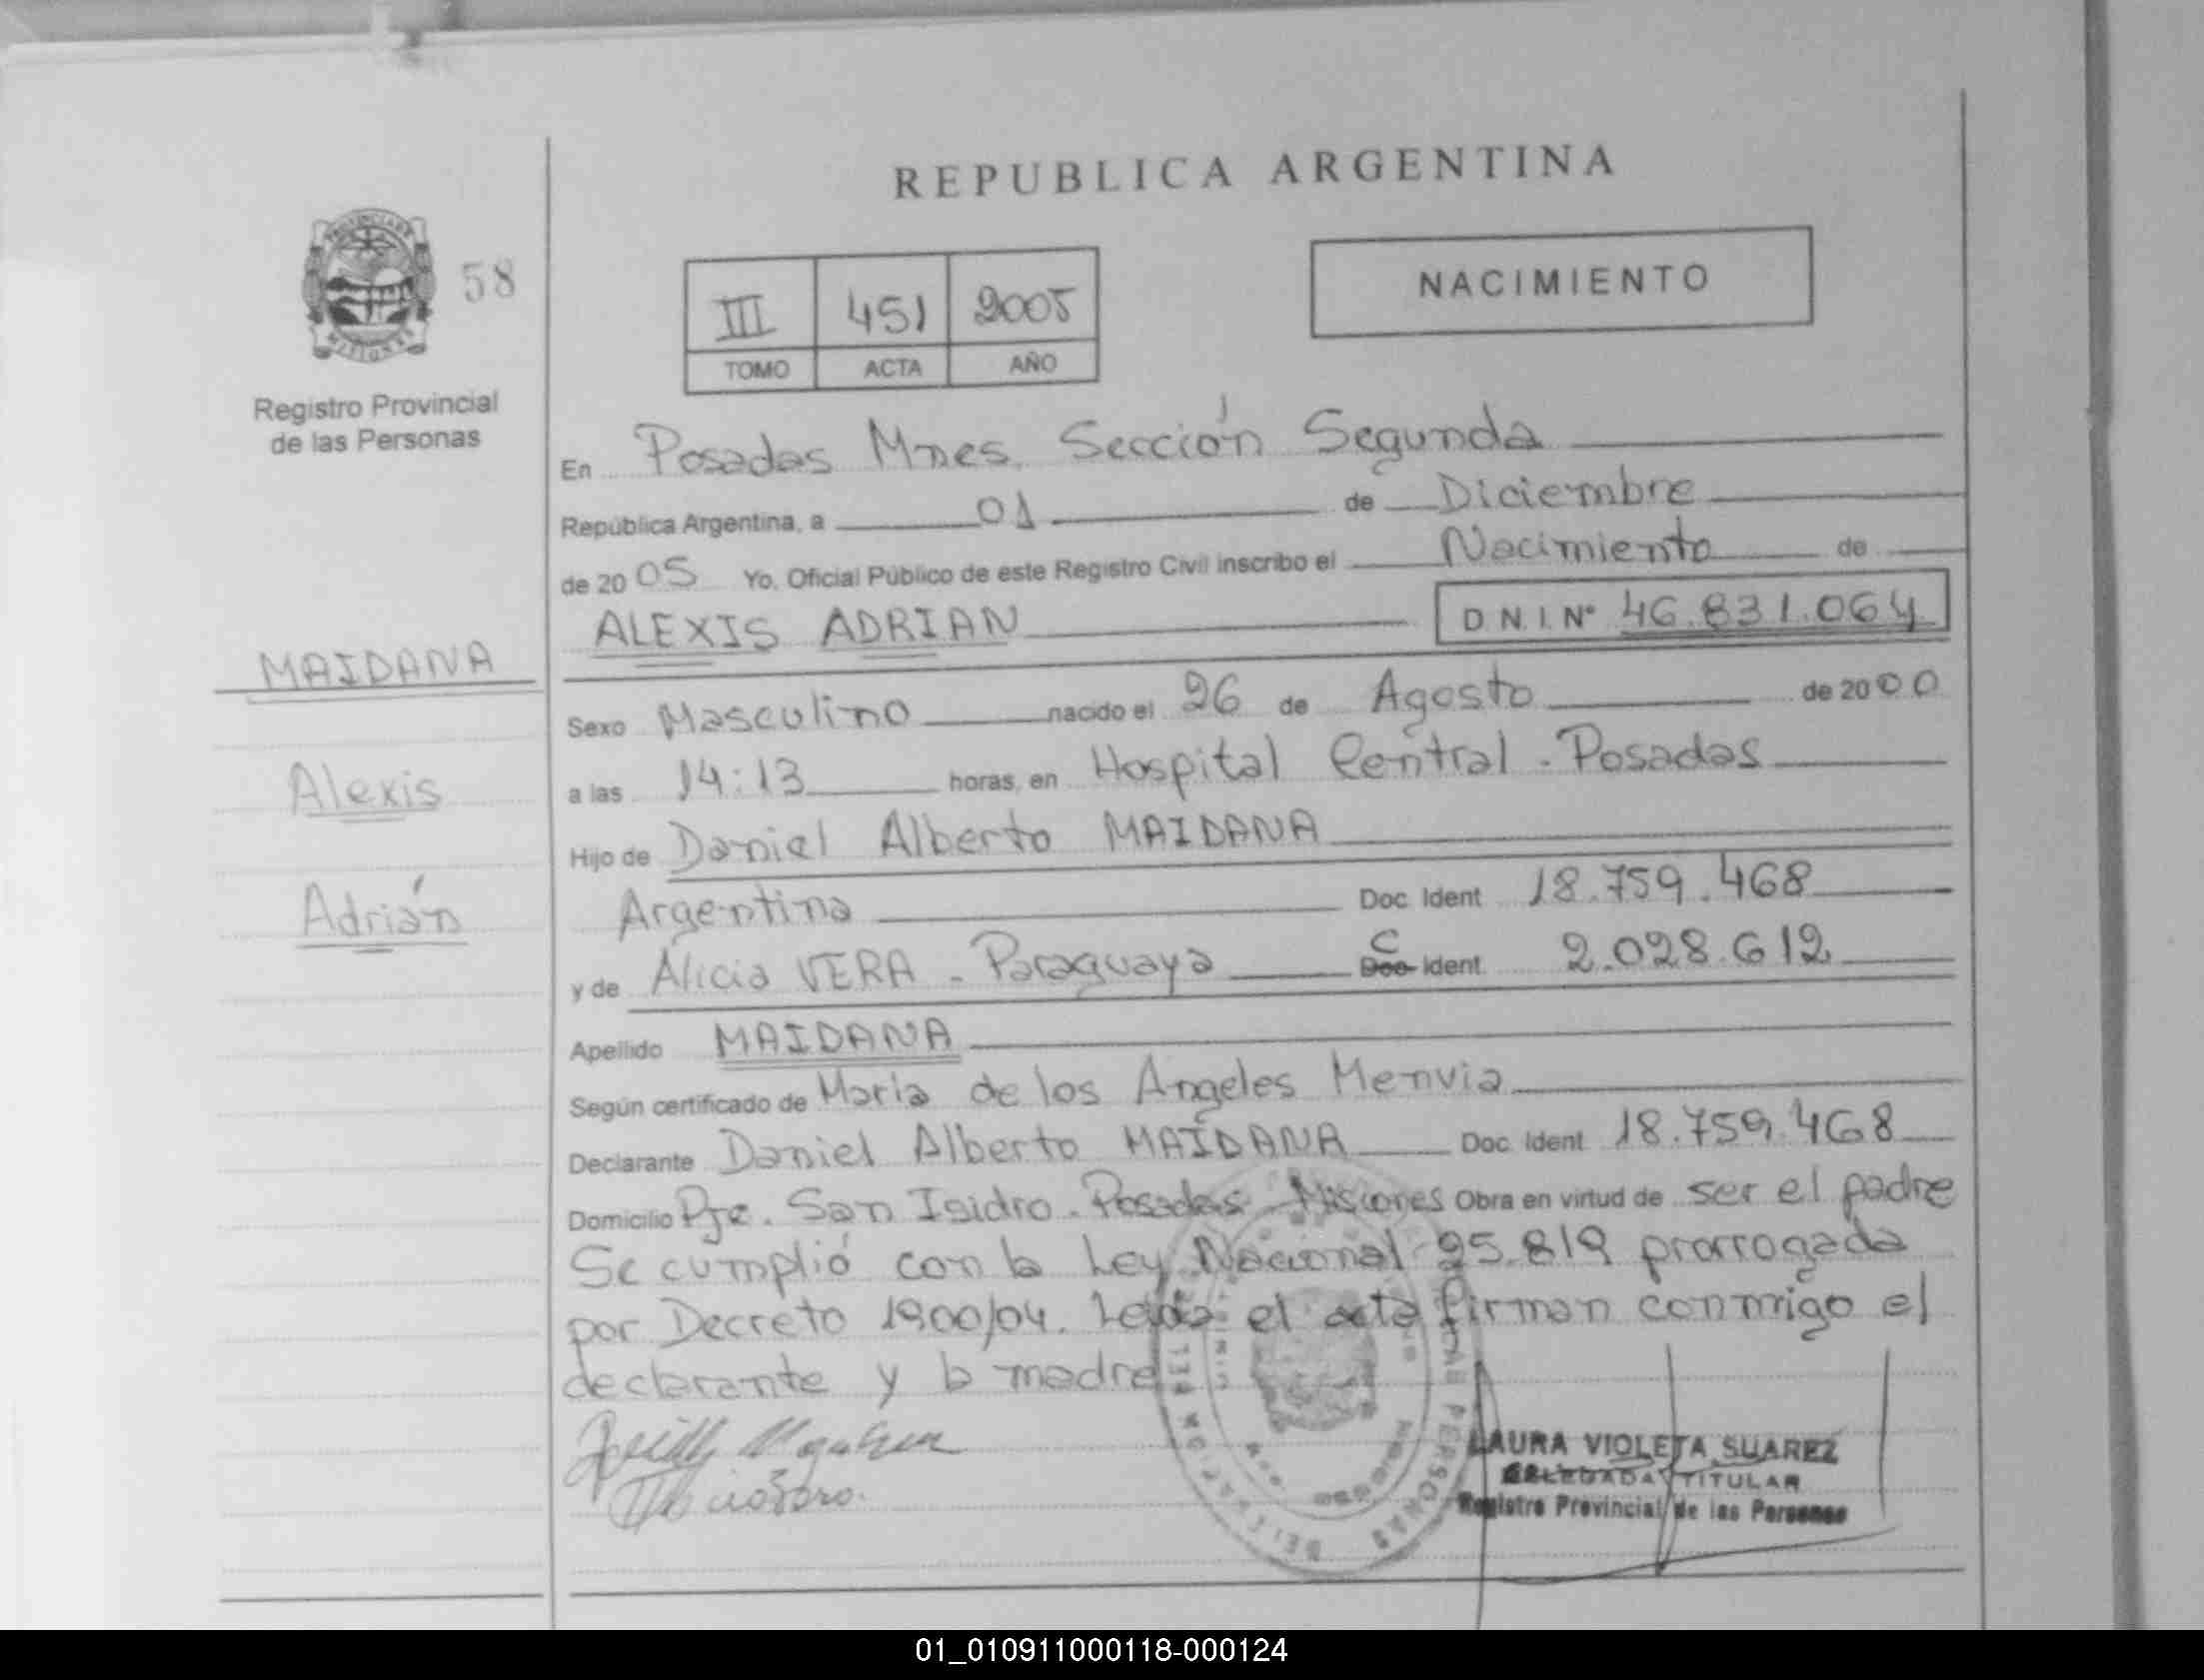 REPUBLICA ARGENTINA
PROVINCIA DE
MISIONES
58
Registro Provincial
de las Personas
III 451 2005
TOMO ACTA AÑO
NACIMIENTO
En Posadas Mnes. Sección Segunda
República Argentina, a 01 de Diciembre
de 2005 Yo, Oficial Público de este Registro Civil inscribo el Nacimiento de
ALEXIS ADRIAN D.N.I. Nº 46.831.064
MAIDANA
Alexis
Adrián
Sexo Masculino nacido el 26 de Agosto de 2000
a las 14:13 horas, en Hospital Central - Posadas
Hijo de Daniel Alberto MAIDANA
Argentina Doc. Ident 18.759.468
y de Alicia VERA - Paraguaya C Doc Ident. 2.028.612
Apellido MAIDANA
Según certificado de María de los Angeles Menvia
Declarante Daniel Alberto MAIDANA Doc. Ident 18.759.468
Domicilio Pje. San Isidro - Posadas - Misiones Obra en virtud de ser el padre
Se cumplió con la Ley Nacional 25.819 prorrogada
por Decreto 1900/04. Leída el acta firman conmigo el
declarante y la madre
LAURA VIOLETA SUAREZ
DELEGADA TITULAR
Registro Provincial de las Personas
01_010911000118-000124